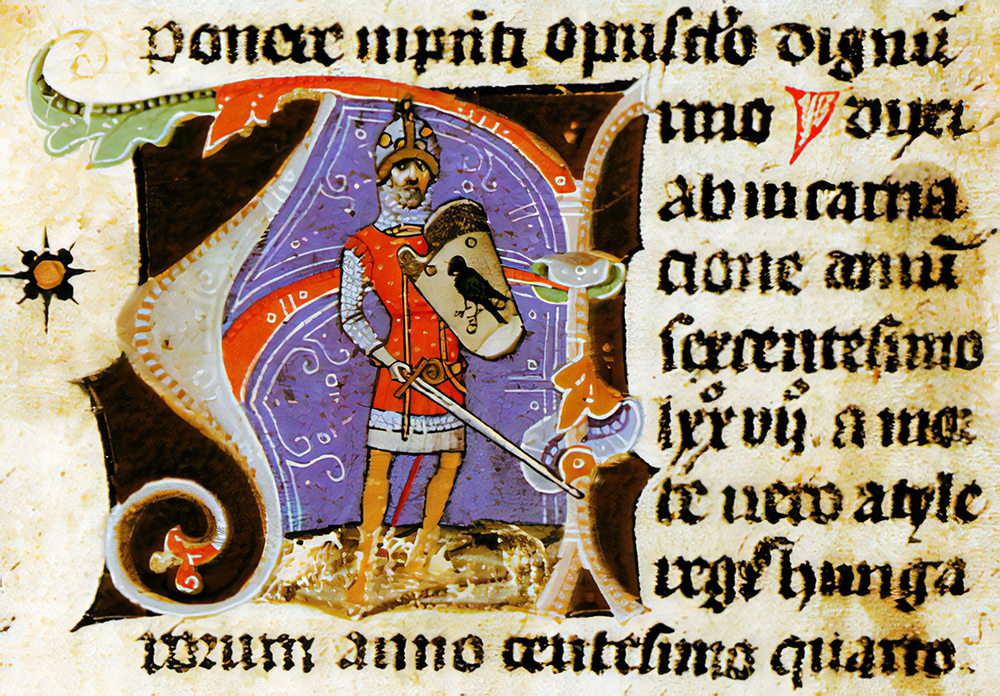 ponere in p̄nti opusc̄lo dignū
Anno duxi
ab incarna
cione annū
sexcentesimo
lxxvij. a mor
te uero atyle
regis hunga
rorum anno centesimo quarto.